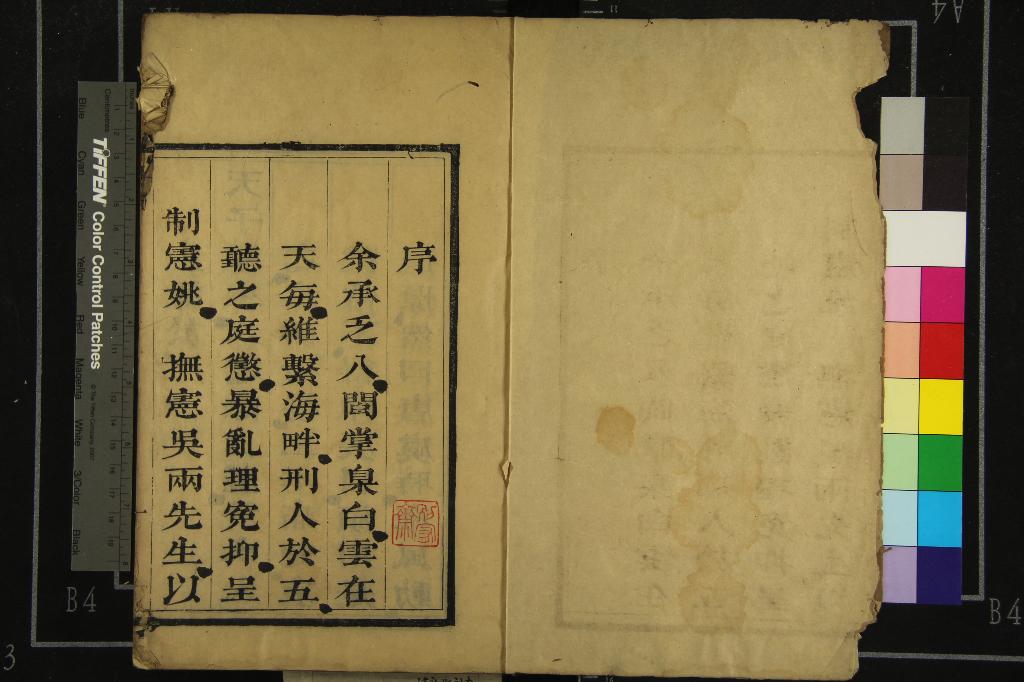 序
余承乏八閩掌臬白雲在
天每維繫海畔刑人於五
聽之庭懲暴亂理寃抑呈
制憲姚 撫憲吳兩先生以
TIFFEN Color Control Patches
Centimetres
Blue Cyan Green Yellow Red Magenta White 3/Color Black
B4
B4
A4
3